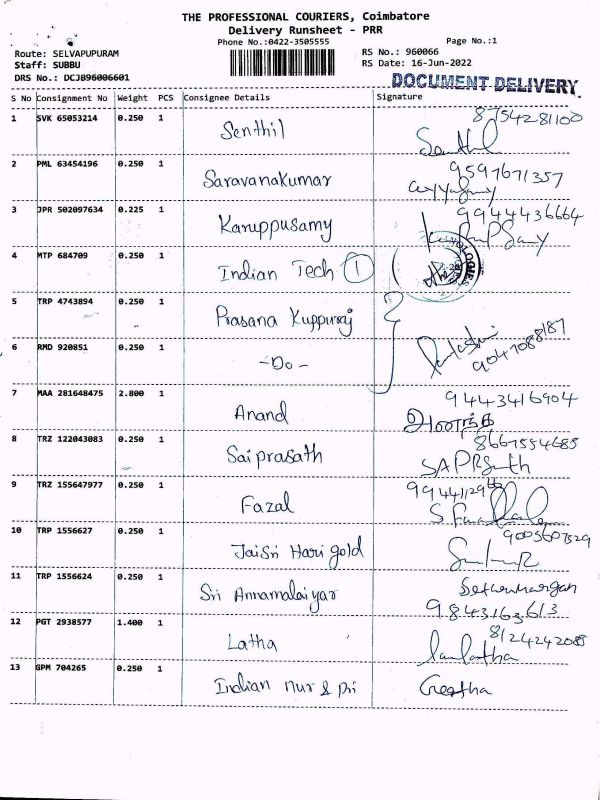 THE PROFESSIONAL COURIERS, Coimbatore
Delivery Runsheet - PRR
Phone No.:0422-3505555
Page No.:1
Route: SELVAPUPURAM
RS No.: 960066
Staff: SUBBU
RS Date: 16-Jun-2022
DRS No.: DCJB96006601
DOCUMENT DELIVERY
S No Consignment No Weight PCS Consignee Details Signature
1 SVK 65053214 0.250 1 Senthil 8754281100
2 PML 63454196 0.250 1 Saravanakumar 9597671357
3 JPR 502097634 0.225 1 Karuppusamy 9944436664
4 MTP 684709 0.250 1 Indian Tech 1
5 TRP 4743894 0.250 1 Prasana Kuppuraj
6 RMD 920851 0.250 1 -Do- 9047088187
7 MAA 281648475 2.800 1 Anand 9443416904
ஆனந்த்
8 TRZ 122043083 0.250 1 Saiprasath 8667554685
9 TRZ 155647977 0.250 1 Fazal
10 TRP 1556627 0.250 1 Jaisri Hari gold
11 TRP 1556624 0.250 1 Sri Annamalaiyar
9843163613
12 PGT 2938577 1.400 1 Latha 8124242085
13 GPM 704265 0.250 1 Indian nur & pri Geetha